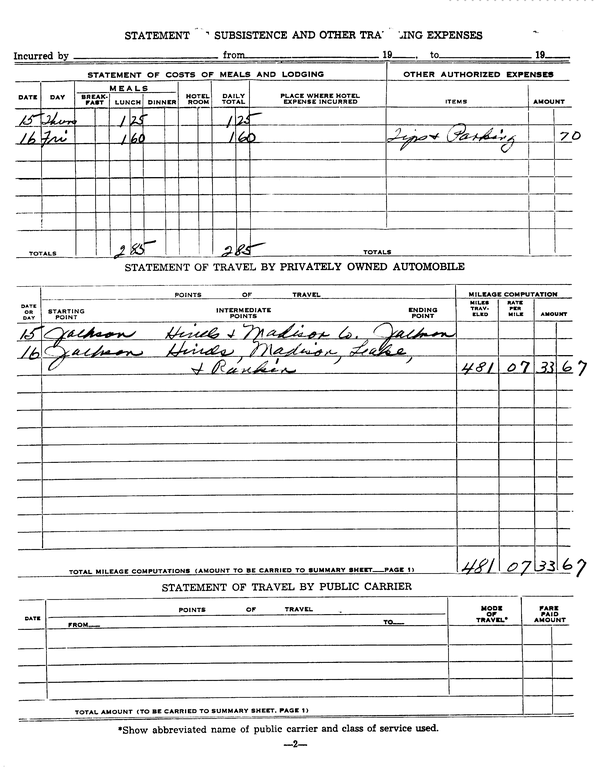 STATEMENT SUBSISTENCE AND OTHER EXPENSES
Incurred by from 19 , to 19
STATEMENT OF COSTS OF MEALS AND LODGING OTHER AUTHORIZED EXPENSES
DATE DAY MEALS HOTEL ROOM DAILY TOTAL PLACE WHERE HOTEL EXPENSE INCURRED ITEMS AMOUNT
BREAK-FAST LUNCH DINNER
15 Thurs 1 25 1 25
16 Fri 1 60 1 60 Tips & Parking 70
TOTALS 2 85 2 85 TOTALS
STATEMENT OF TRAVEL BY PRIVATELY OWNED AUTOMOBILE
DATE OR DAY POINTS OF TRAVEL MILEAGE COMPUTATION
STARTING POINT INTERMEDIATE POINTS ENDING POINT MILES TRAV-ELED RATE PER MILE AMOUNT
15 Jackson Hinds & Madison Co. Jackson
16 Jackson Hinds, Madison, Leake,
& Rankin 481 07 33 67
TOTAL MILEAGE COMPUTATIONS (AMOUNT TO BE CARRIED TO SUMMARY SHEET—PAGE 1) 481 07 33 67
STATEMENT OF TRAVEL BY PUBLIC CARRIER
DATE POINTS OF TRAVEL MODE OF TRAVEL* FARE PAID AMOUNT
FROM— TO—
TOTAL AMOUNT (TO BE CARRIED TO SUMMARY SHEET, PAGE 1)
*Show abbreviated name of public carrier and class of service used.
—2—